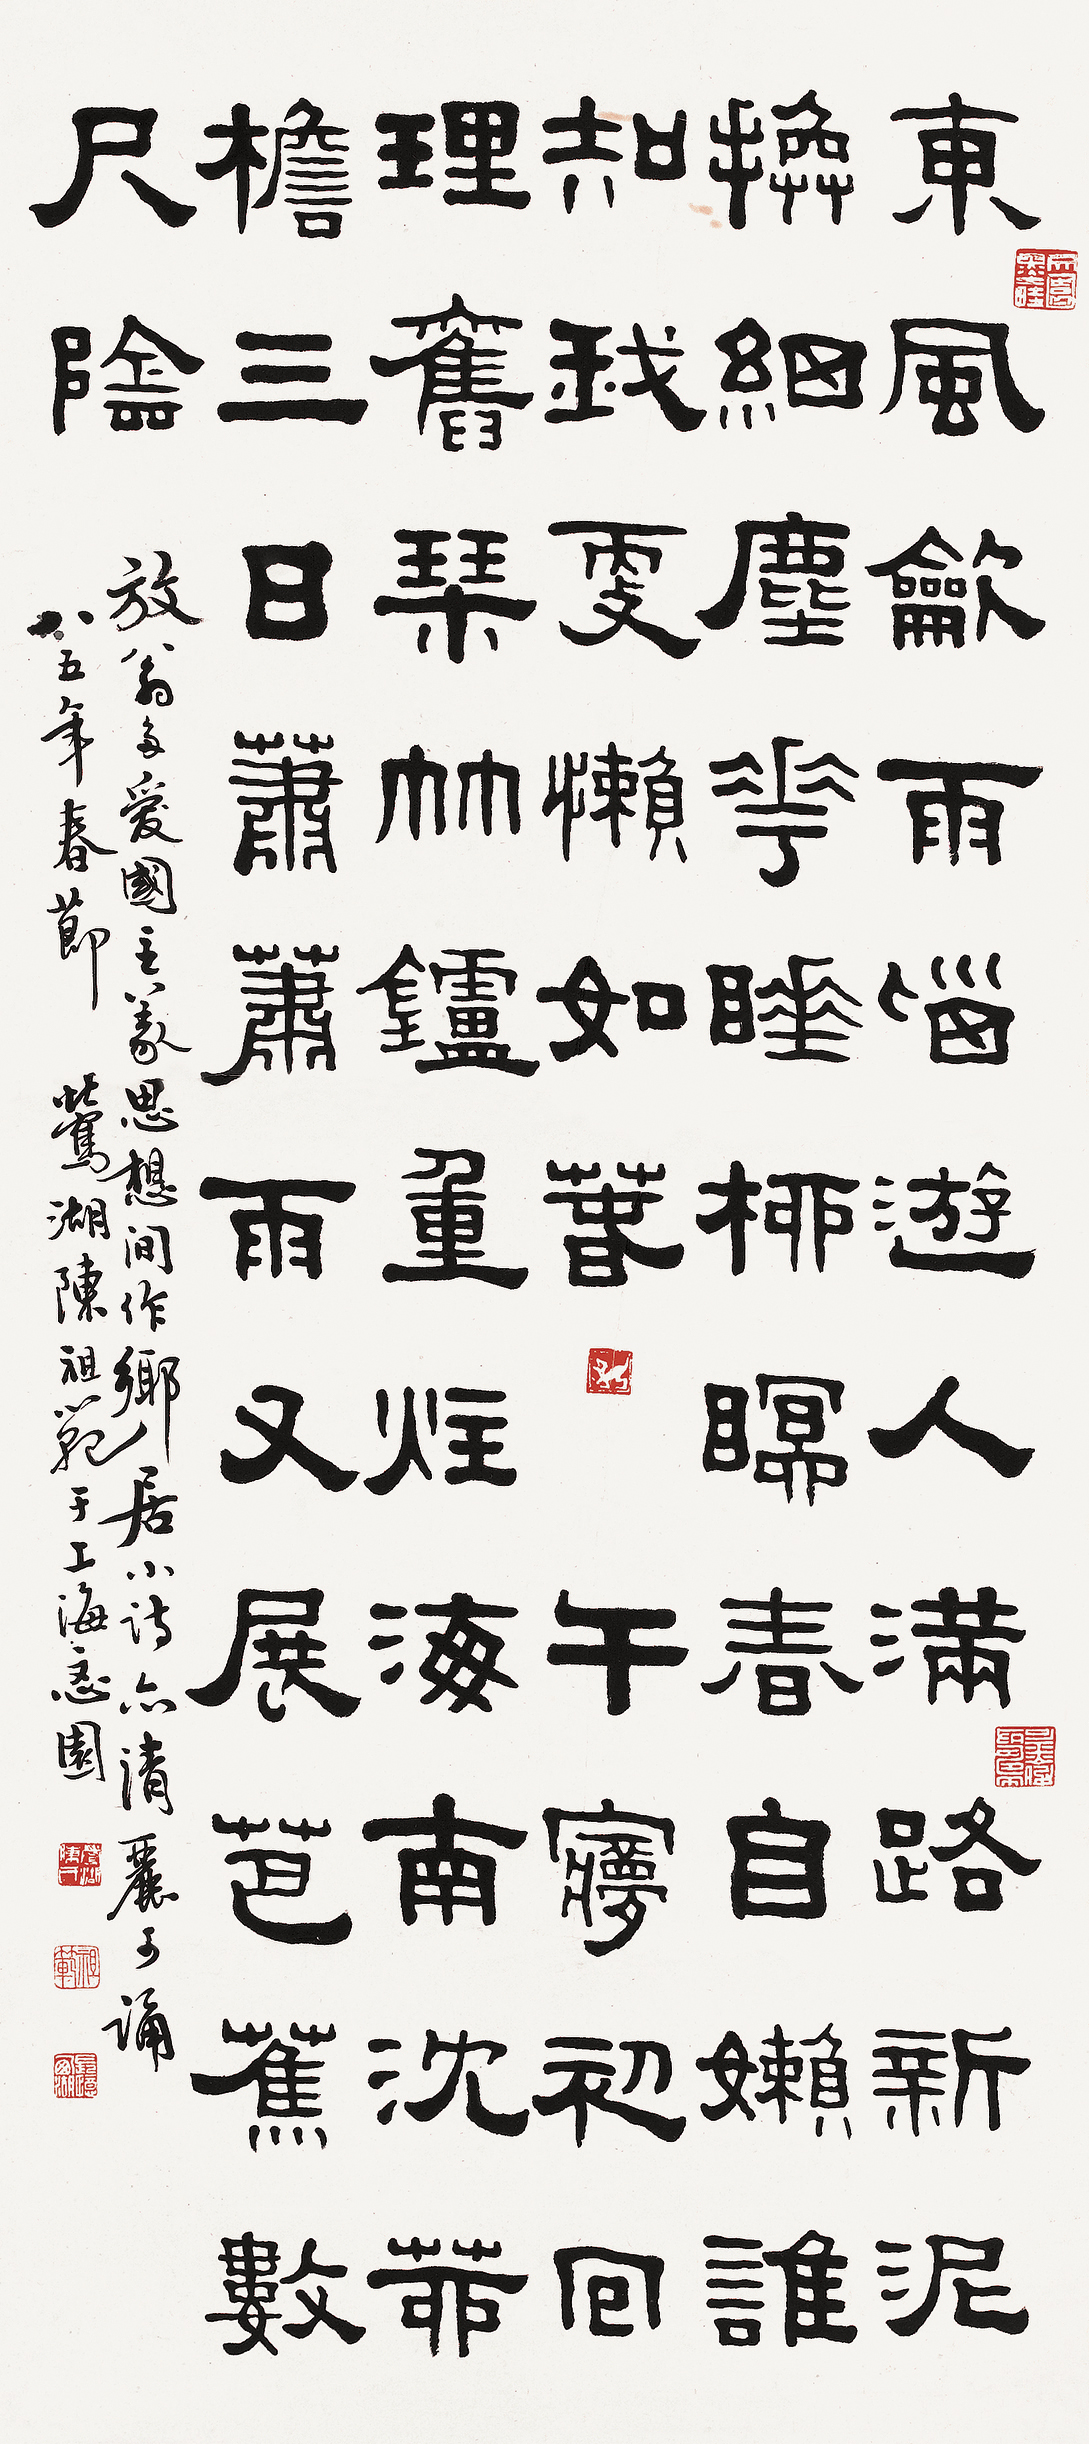 東風龡雨惱遊人滿路新泥
換細塵花睡柳瞑春自嬾誰
知我更懶如萅午夢初回
理舊琴竹鑪重炷海南沈茆
檐三日蕭蕭雨又展芭蕉數
尺陰
放翁多愛國主義思想间作鄉居小詩亦清麗可誦
八五年春節 鶯湖陳祖範于上海園